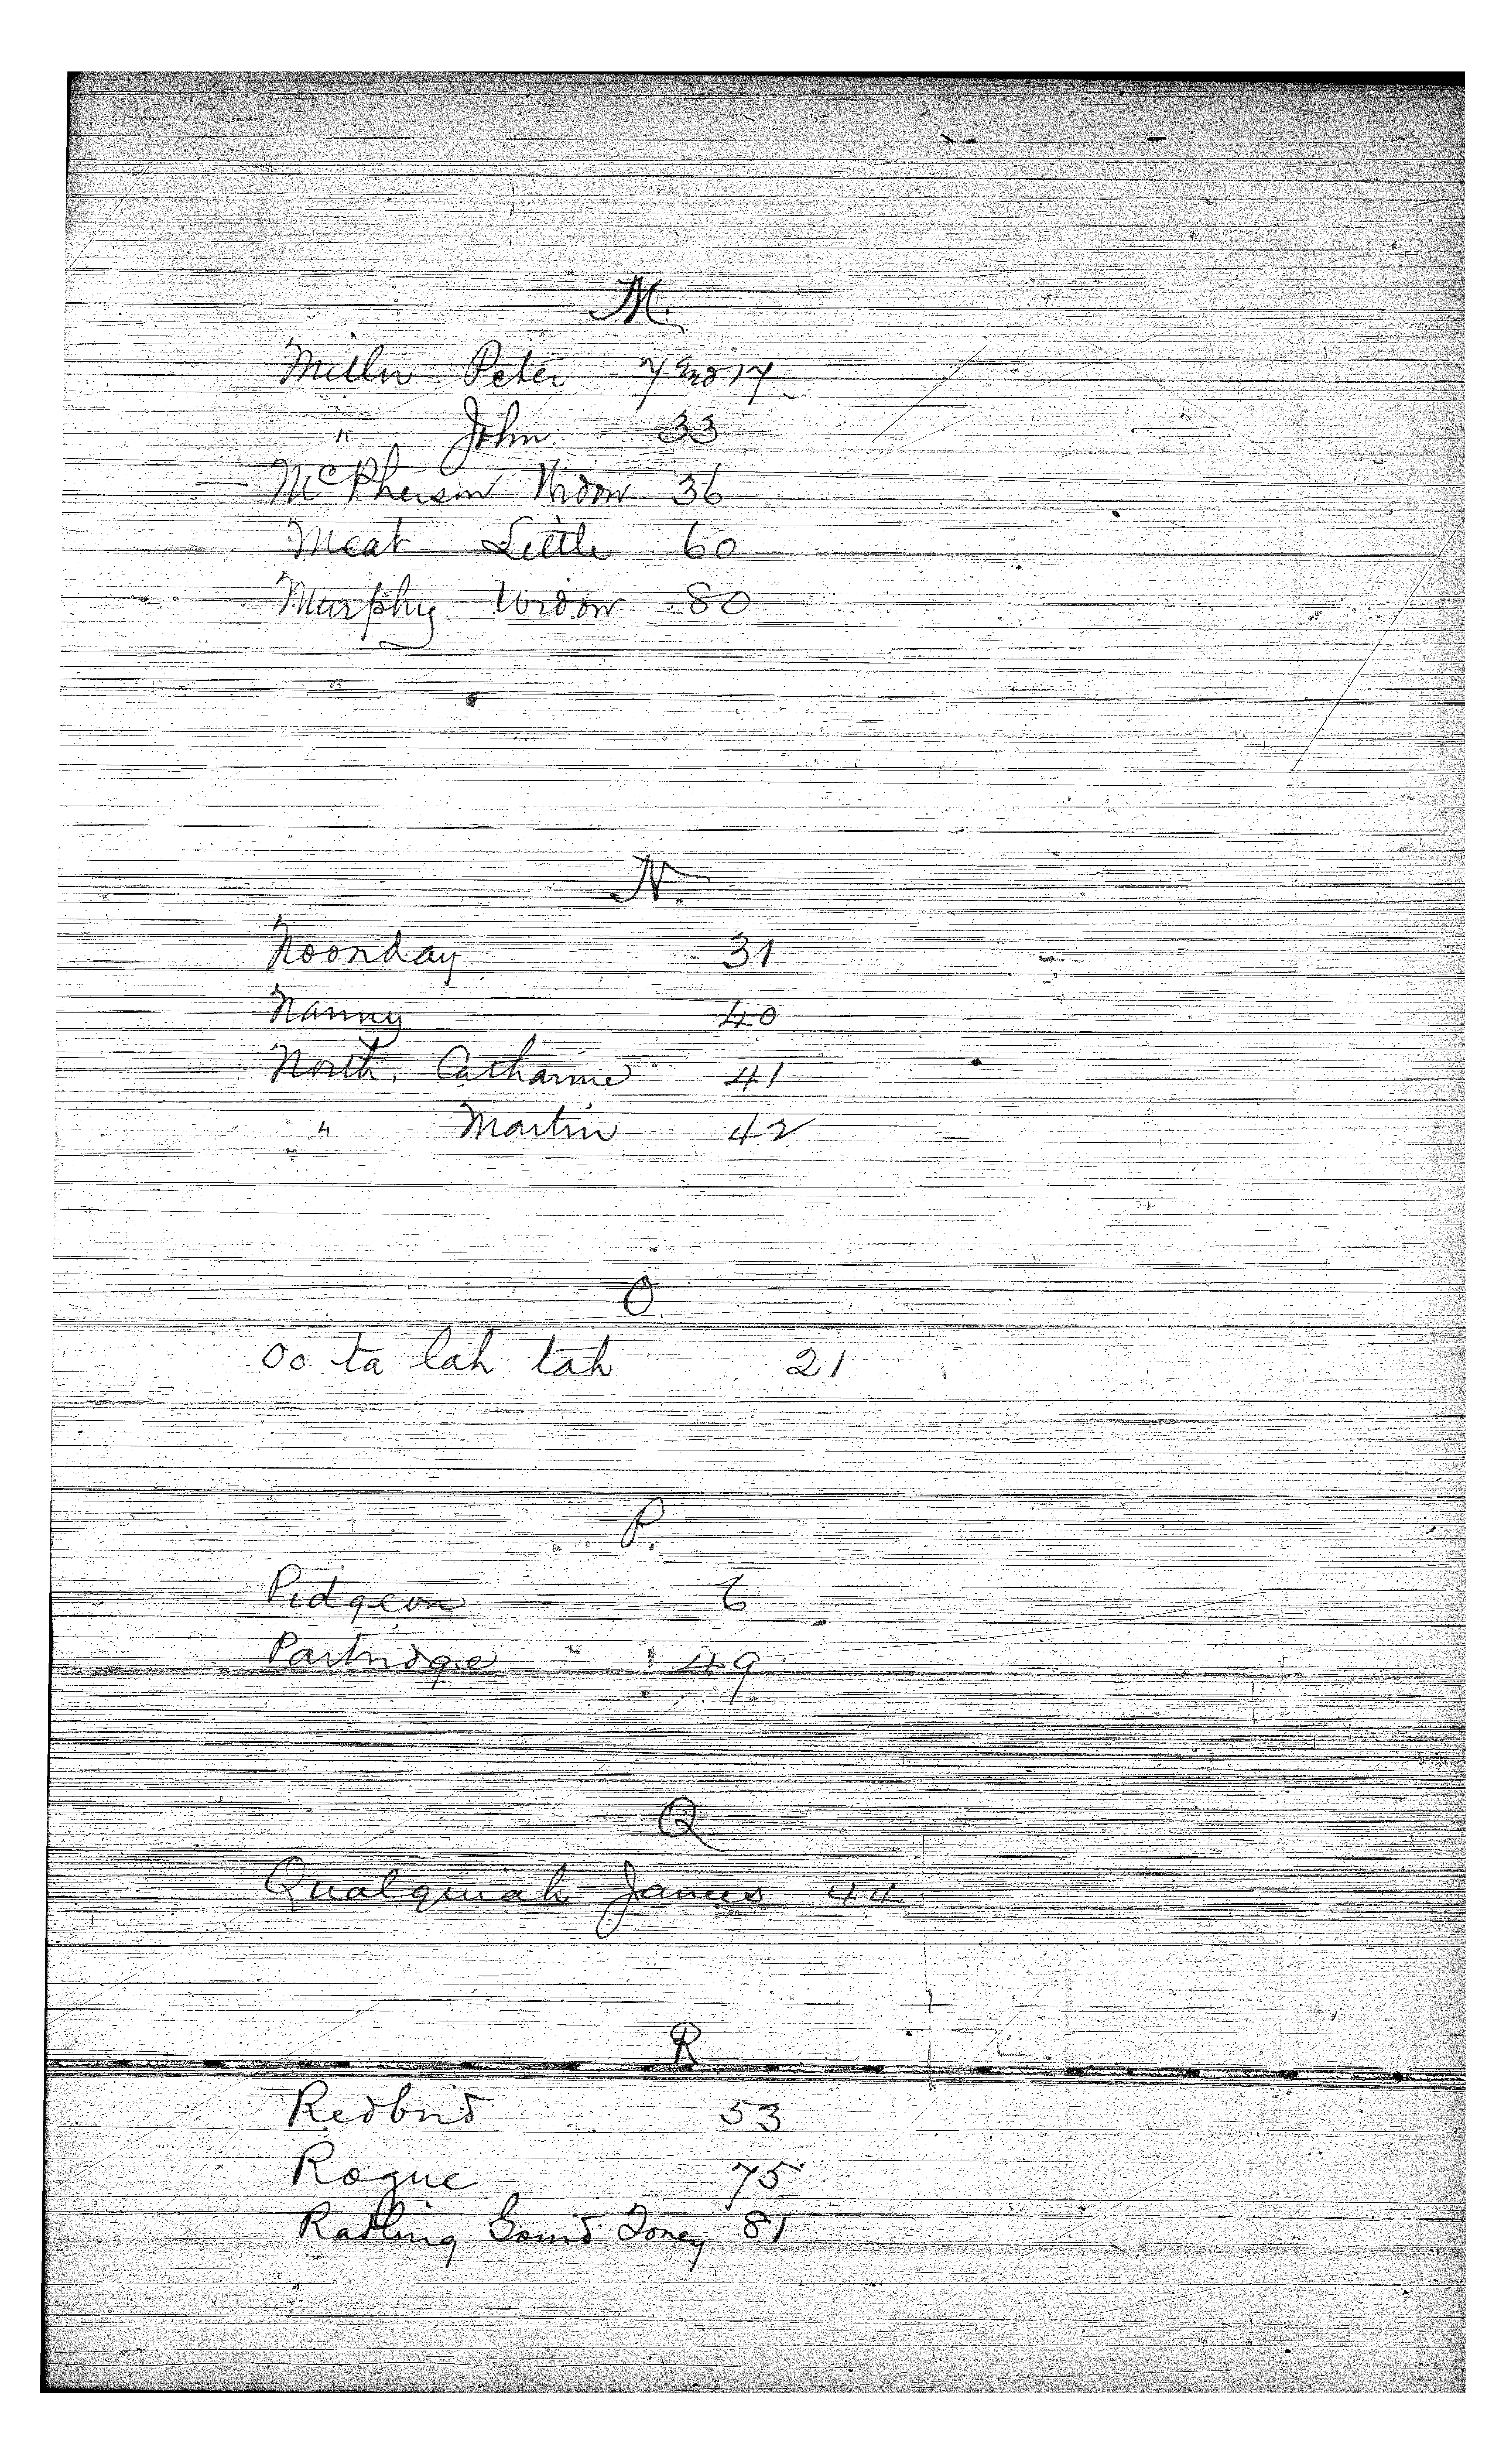 M.
Miller Peter 7 and 17
" John 33
McPherson Widow 36
Meat Little 60
Murphy Widow 80
N.
Noonday 31
Nanny 40
North, Catharine 41
" Martin 42
O.
Oo ta lah tah 21
P.
Pidgeon 6
Partridge 49
Q
Qualquiah James 44
R
Redbird 53
Rogue 75
Ratling Gourd Toney 81